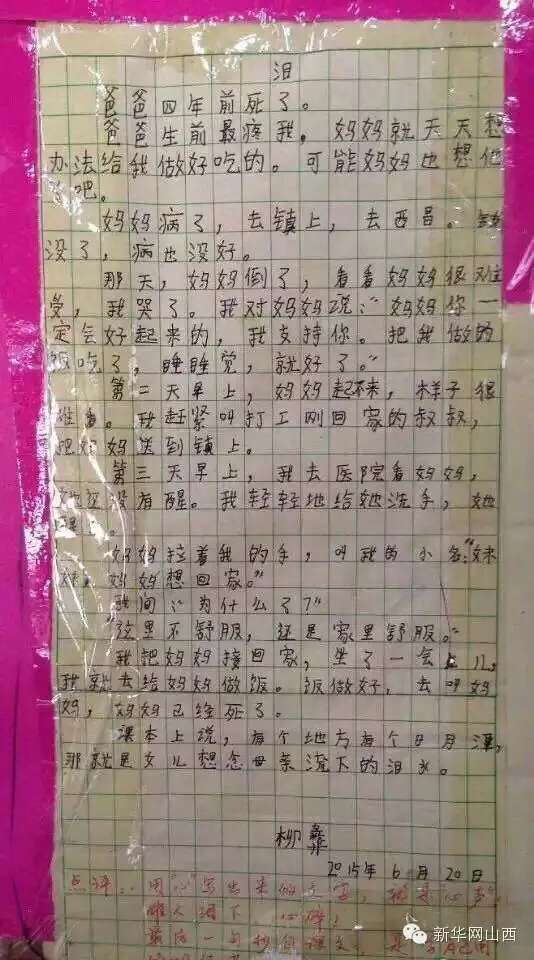 泪
爸爸四年前死了。
爸爸生前最疼我，妈妈就天天想
办法给我做好吃的。可能妈妈也想他
了吧。
妈妈病了，去镇上，去西昌。钱
没了，病也没好。
那天，妈妈倒了，看看妈妈很难
受，我哭了。我对妈妈说：“妈妈你一
定会好起来的，我支持你。把我做的
饭吃了，睡睡觉，就好了。”
第二天早上，妈妈起不来，样子很
难看。我赶紧叫打工刚回家的叔叔，
把妈妈送到镇上。
第三天早上，我去医院看妈妈，
她还没有醒。我轻轻地给她洗手，她
醒了。
妈妈拉着我的手，叫我的小名：“妹
妹，妈妈想回家。”
我问：“为什么了？”
“这里不舒服，还是家里舒服。”
我把妈妈接回家，坐了一会儿，
我就去给妈妈做饭。饭做好，去叫妈
妈，妈妈已经死了。
课本上说，有个地方有个日月潭，
那就是女儿想念母亲流下的泪水。
柳彝
2015年6月20日
点评：用“心”写出来的文字，
催人泪下
最后一句
新华网山西